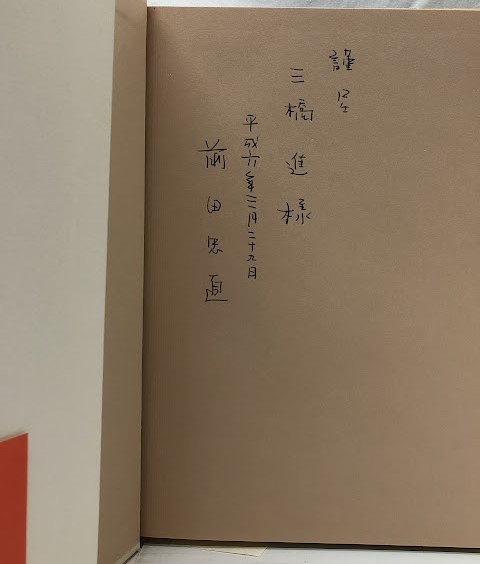 謹呈
三橋進様
平成六年三月二十九日
前田忠直